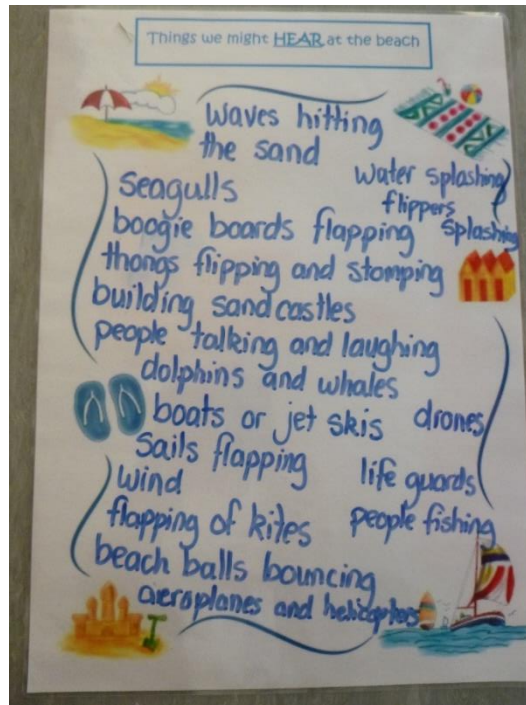 Things we might HEAR at the beach
waves hitting
the sand
water splashing
seagulls
flippers
boogie boards flapping splashing
thongs flipping and stomping
building sandcastles
people talking and laughing
dolphins and whales
boats or jet skis drones
sails flapping
wind life guards
flapping of kites people fishing
beach balls bouncing
aeroplanes and helicopters